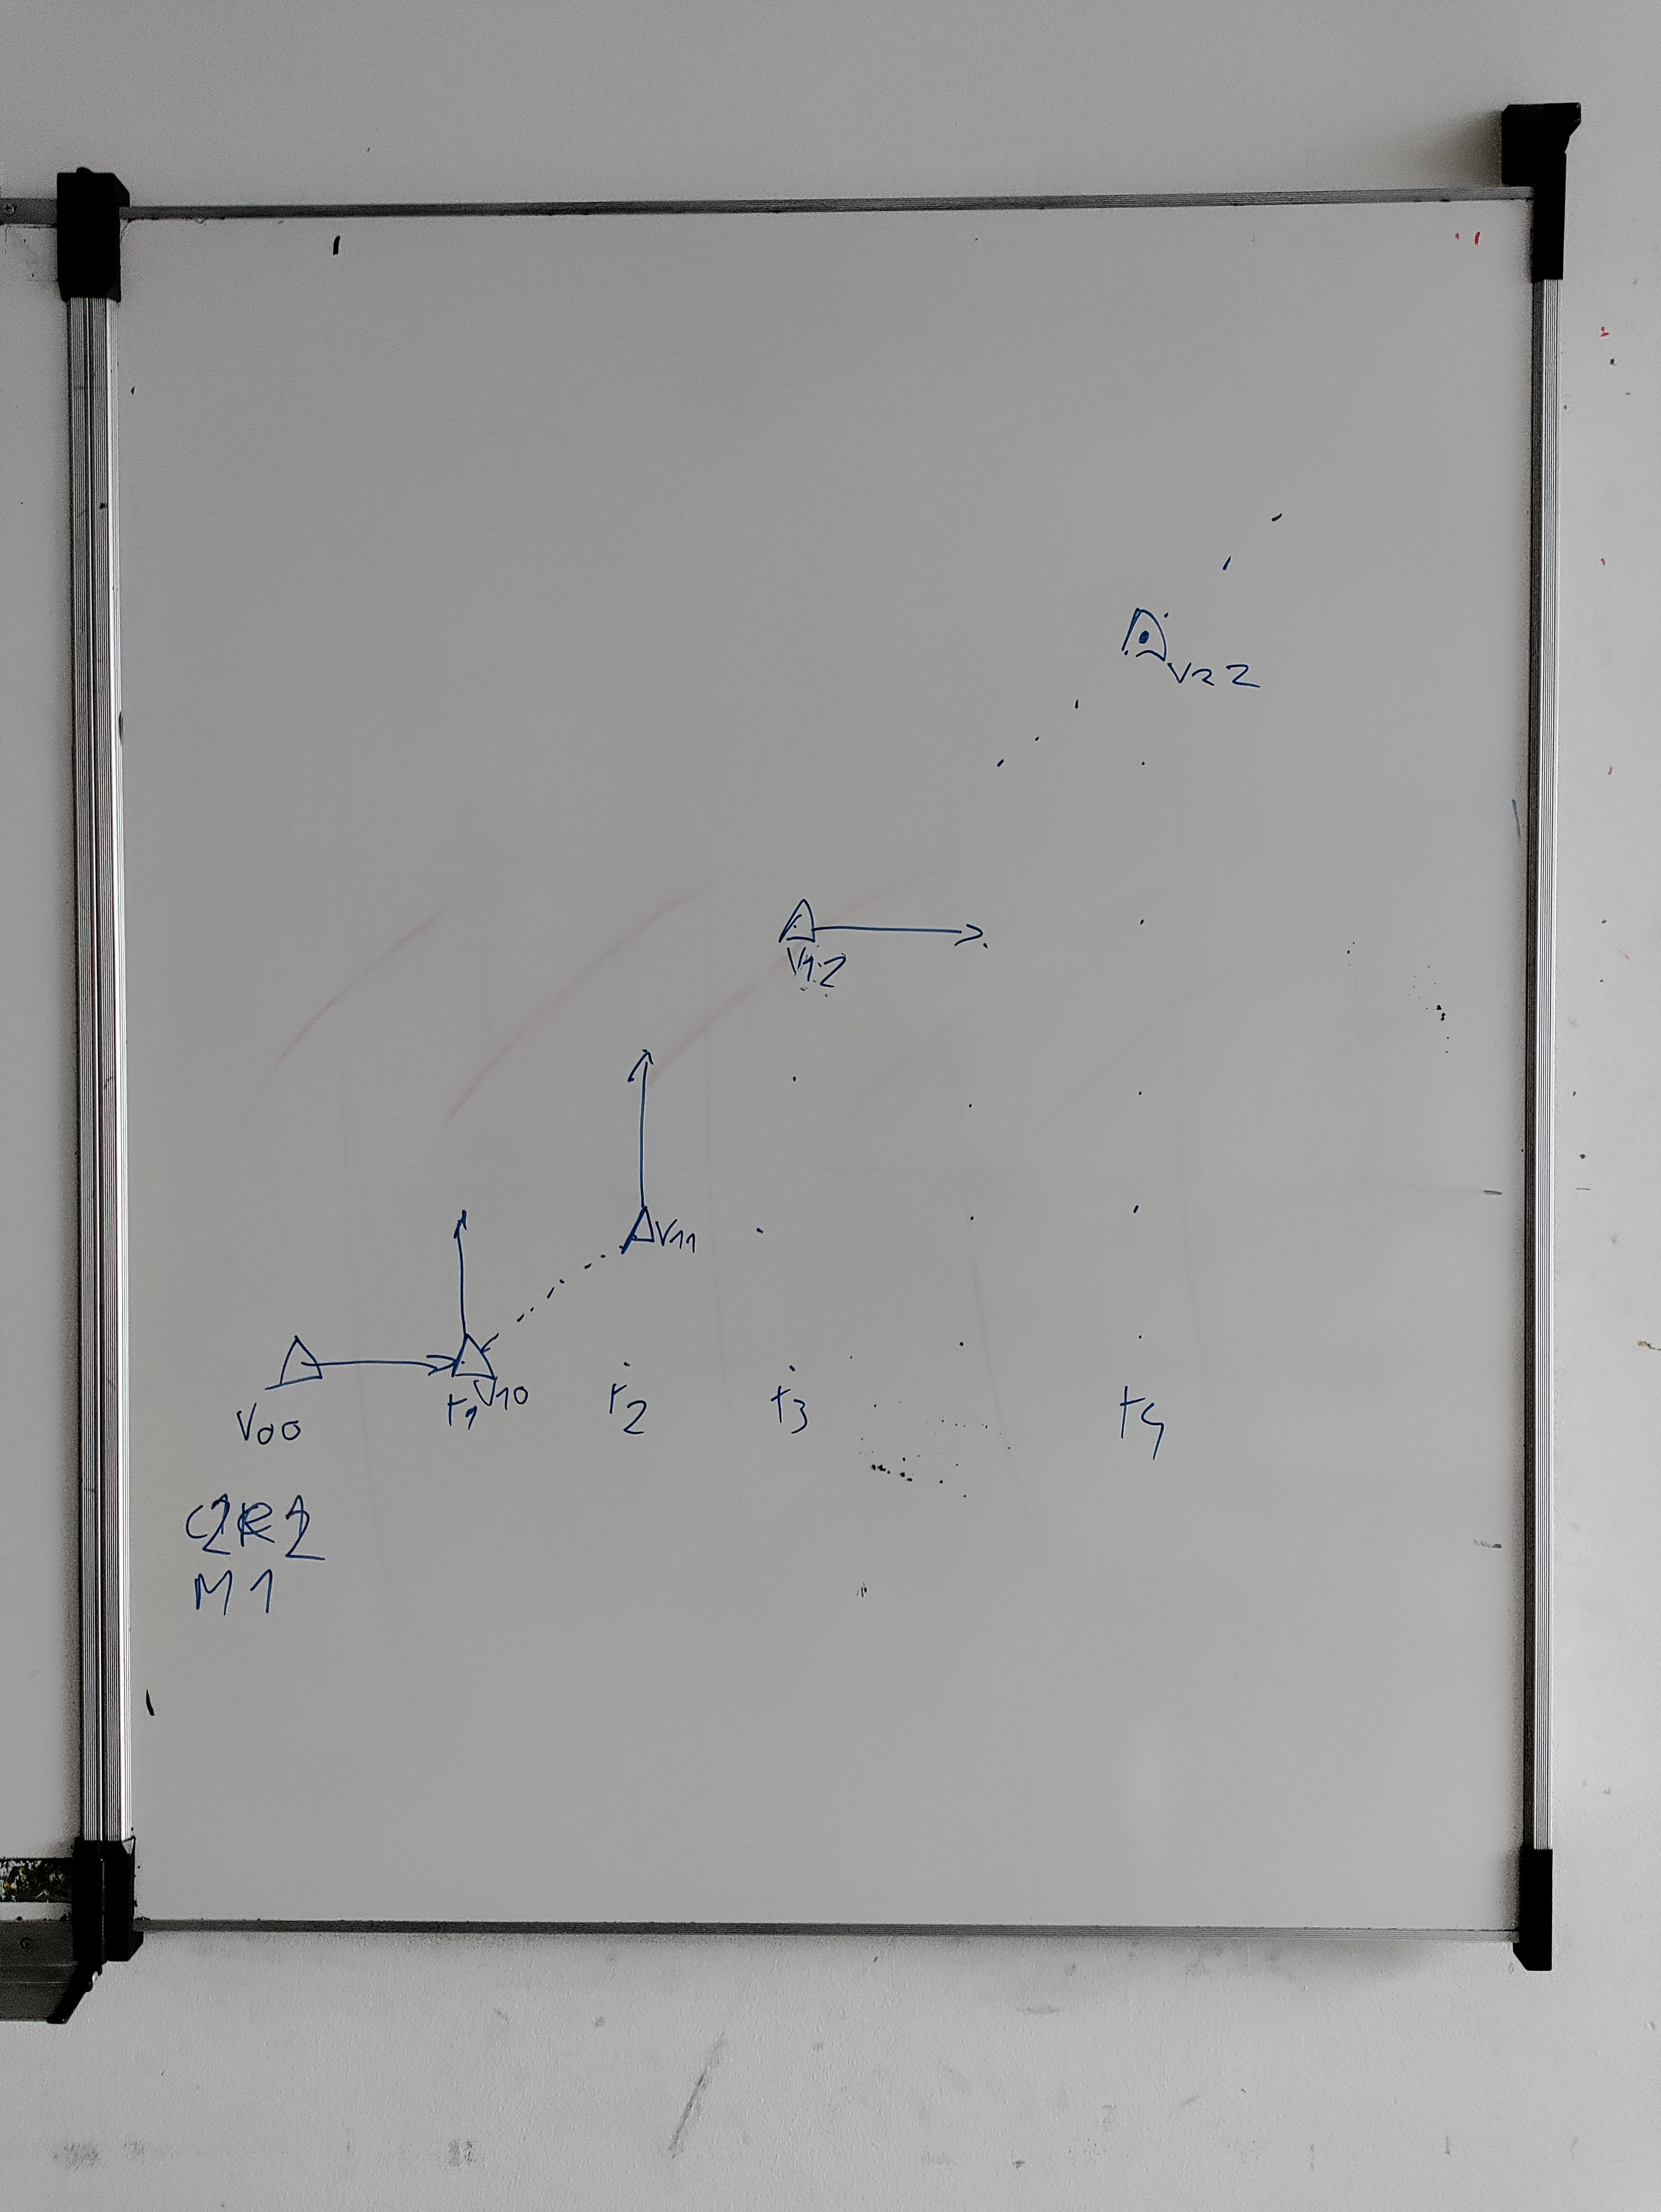 V22
V12
V11
V00
t1
V10
t2
t3
t4
M1